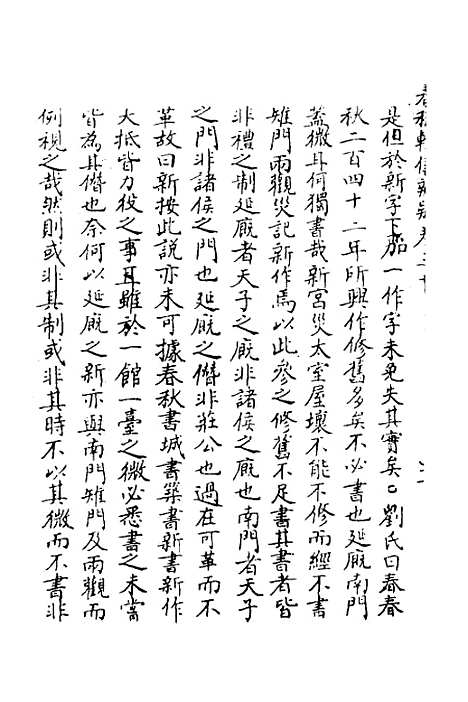 是但於新字下加一作字未免失其實矣〇劉氏曰春
秋二百四十二年所興作修舊多矣不必書也延廐南門
蓋微耳何獨書哉新宮災太室屋壞不能不修而經不書
雉門兩觀災記新作焉以此參之修舊不足書其書者皆
非禮之制延廐者天子之廐非諸侯之廐也南門者天子
之門非諸侯之門也延廐之僭非莊公也過在可革而不
革故曰新按此說亦未可據春秋書城書築書新書新作
大抵皆力役之事耳雖於一館一臺之微必悉書之未嘗
皆為其僭也奈何以延廐之新亦與南門雉門及兩觀而
例視之哉然則或非其制或非其時不以其微而不書非